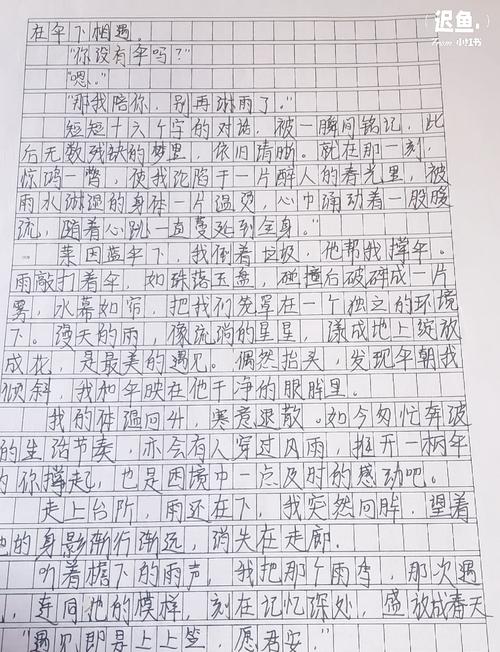 迟鱼.
From 小红书
在伞下相遇。
"你没有伞吗？"
"嗯。"
"那我陪你，别再淋雨了。"
短短十六个字的对话，被一瞬间铭记，此
后无数残缺的梦里，依旧清晰。就在那一刻，
惊鸿一瞥，使我沦陷于一片醉人的春光里，被
雨水淋湿的身体一片温烫，心巾涌动着一股暖
流，随着心跳一直蔓延到全身。
莱因蓝伞下，我倒着垃圾，他帮我撑伞。
雨敲打着伞，如珠落玉盘，碰撞后破碎成一片
雾，水幕如帘，把我们笼罩在一个独立的环境
下。漫天的雨，像流淌的星星，漾成地上绽放
成花，是最美的遇见。偶然抬头，发现伞朝我
倾斜，我和伞映在他干净的眼眸里。
我的体温回升，寒意退散。如今匆忙奔波
的生活节奏，亦会有人穿过风雨，撑开一柄伞
为你撑起，也是困境中一点及时的感动吧。
走上台阶，雨还在下，我突然回眸，望着
他的身影渐行渐远，消失在走廊。
听着檐下的雨声，我把那个雨季，那次遇
，连同他的模样，刻在记忆深处，盛放成春天
"遇见即是上上签，愿君安。"